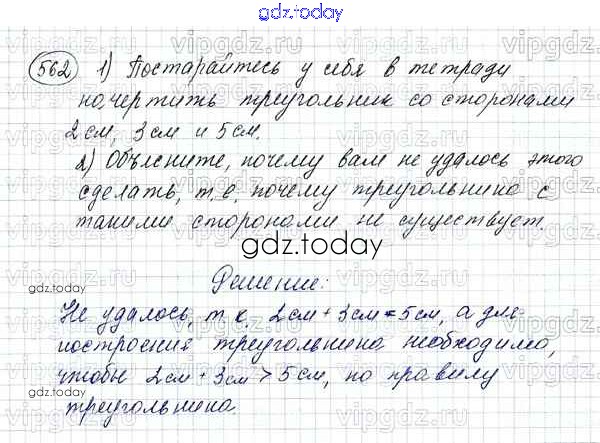 gdz.today
562 1) Постарайтесь у себя в тетради
начертить треугольник со сторонами
2 см, 3 см и 5 см.
2) Объясните, почему вам не удалось этого
сделать, т.е. почему треугольника с
такими сторонами не существует.
gdz.today
gdz.today
Решение:
gdz.today
Не удалось, т.к. 2 см + 3 см = 5 см, а для
построения треугольника необходимо,
чтобы 2 см + 3 см > 5 см, по правилу
gdz.today
треугольника.